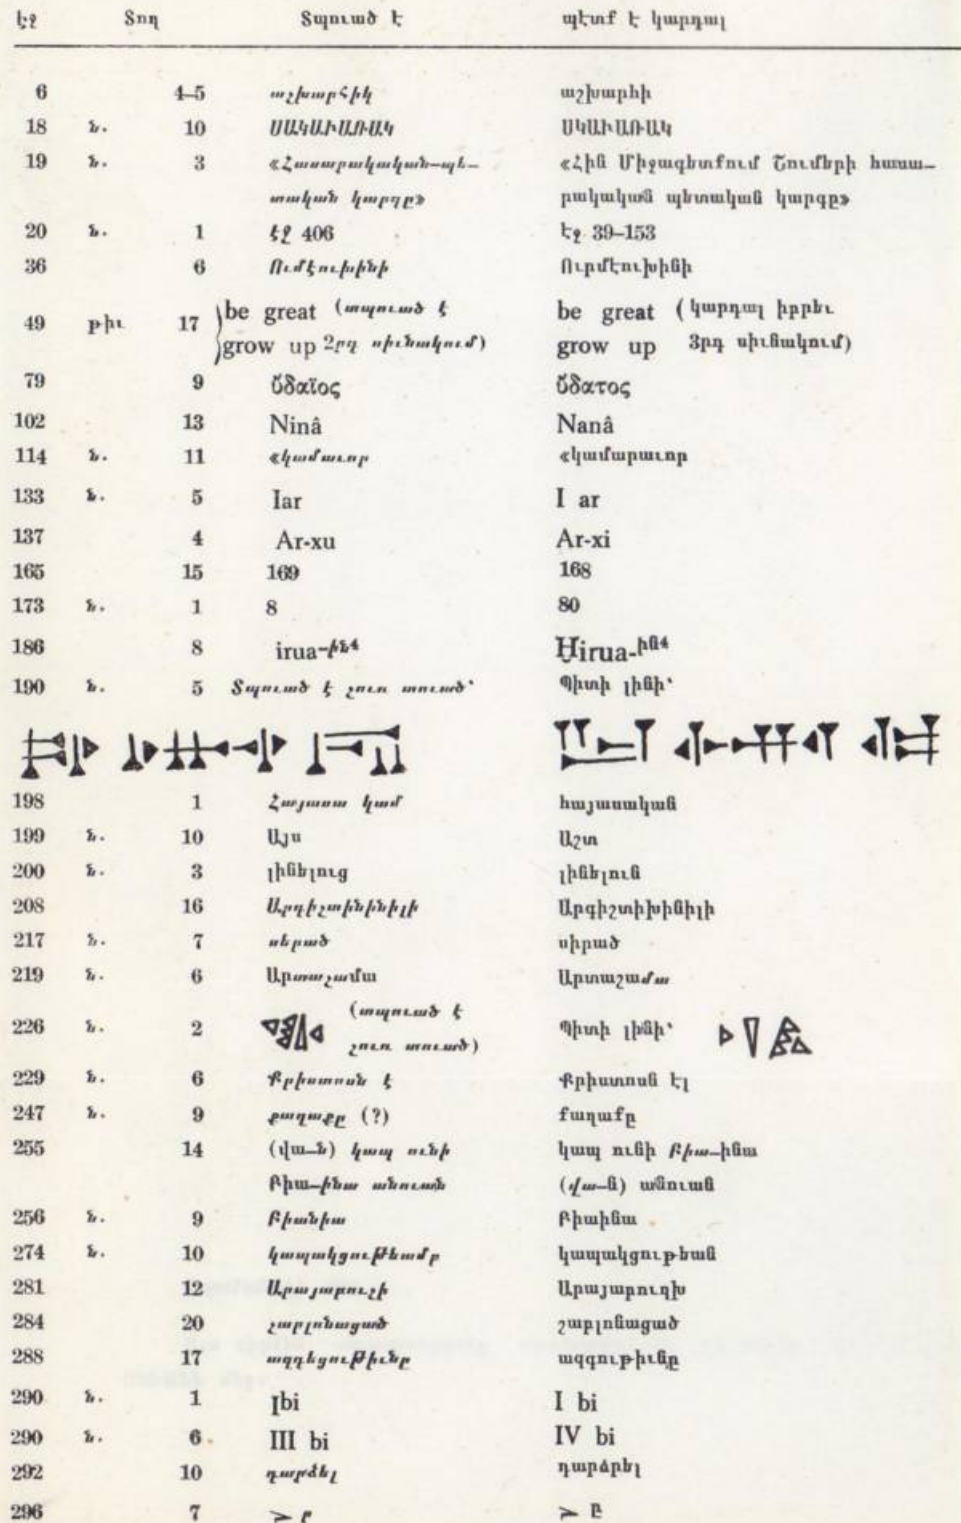 էջ Տող Տպուած է պէտք է կարդալ
6 4–5 աշխարՀիկ աշխարհի
18 ն. 10 ՍԱԿԱԻԱՌԱԿ ՍԿԱԻԱՌԱԿ
19 ն. 3 «Հասարակական–պե– «Հին Միջագետքում Շումերի հասա–
տական կարգը» րակական պետական կարգը»
20 ն. 1 էջ 406 էջ 39–153
36 6 Ումէուխինի Ուրմէուխինի
49 թիւ 17 be great (տպուած է be great (կարդալ իբրեւ
grow up 2րդ սիւնակում) grow up 3րդ սիւնակում)
79 9 ὕδαῖος ὕδατος
102 13 Ninâ Nanâ
114 ն. 11 «կամաւոր «կամարաւոր
133 ն. 5 Iar I ar
137 4 Ar-xu Ar-xi
165 15 169 168
173 ն. 1 8 80
186 8 irua-ին4 Ḫirua-ին4
190 ն. 5 Տպուած է շուռ տուած՝ Պիտի լինի՝
198 1 Հայասա կամ հայասական
199 ն. 10 Այս Աշտ
200 ն. 3 լինելուց լինելուն
208 16 Արդիշտինինիլի Արգիշտիխինիլի
217 ն. 7 սերած սիրած
219 ն. 6 Արտաշամա Արտաշամա
226 ն. 2 (տպուած է շուռ տուած) Պիտի լինի՝
229 ն. 6 Քրիստոսն է Քրիստոսն էլ
247 ն. 9 քաղաքը (?) քաղաքը
255 14 (վա–ն) կապ ունի կապ ունի Բիա–ինա
Բիա–ինա անուան (վա–ն) անուան
256 ն. 9 Բիանիա Բիաինա
274 ն. 10 կապակցութեամբ կապակցութեան
281 12 Արայաբուշի Արայաբուղխ
284 20 շարլոնացած շաբլոնացած
288 17 ազդեցութիւնը ազգութիւնը
290 ն. 1 Ibi I bi
290 ն. 6 III bi IV bi
292 10 դարձել դարձրել
296 7 > ը > ը